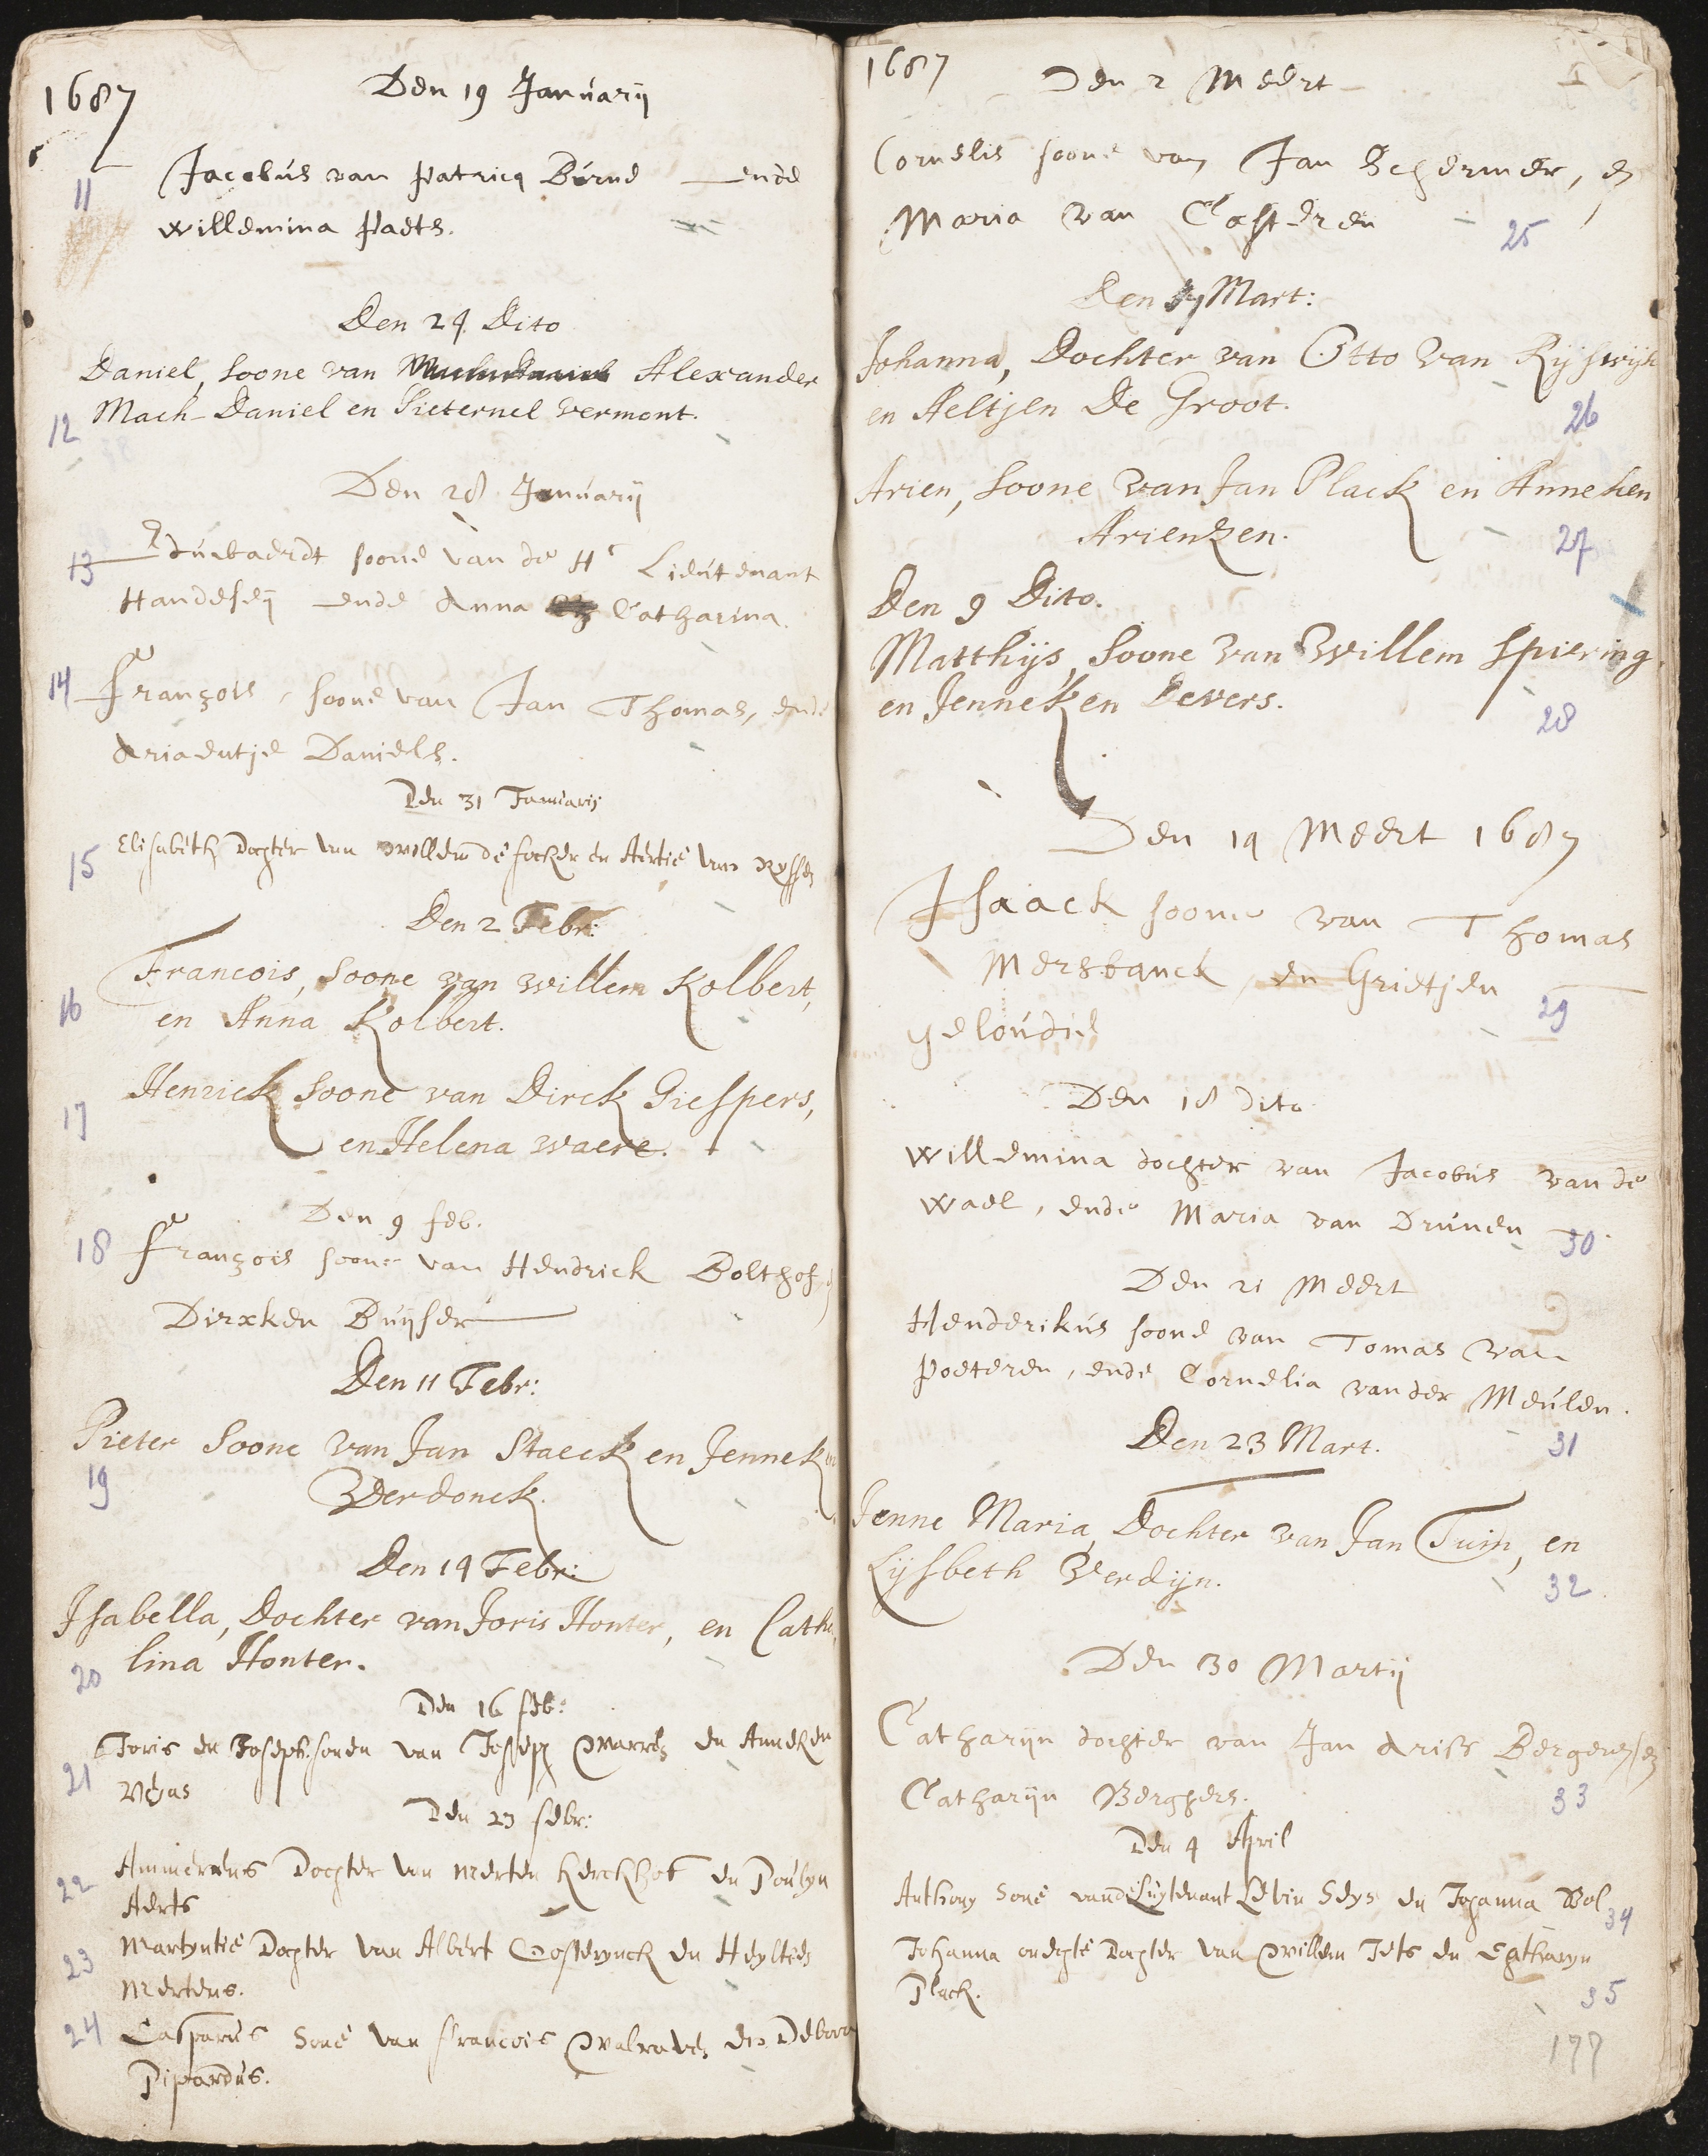 1687
Den 19 Januarij
11 Jacobus van Patricq Burne ende
willemina Paets.
Den 24 Dito
Daniel, soone van Alexander
Mach-Daniel en Pieternel vermont.
12
Den 28 Januarij
13 Eduwaerdt soone van de Hr Lieutenant
Handeseij ende Anna Catharina.
14 François, soone van Jan Thomas, ende
Ariaentje Daniels.
Den 31 Januarij
15 Elisabeth Dochter van Willem de focker en Aertie van Ryssen
Den 2 Febr:
Francois, soone van willem Kolbert,
16 en Anna Kolbert.
Henrick soone van Dirck Giespers,
17 en Helena waere.
Den 9 feb.
18 François soone van Hendrick Bolthof
Dirxken Buijser
Den 11 Febr:
Pieter soone van Jan Staeck en Jenneken
19 Verdonck.
Den 14 Febr:
Isabella, Dochter van Joris Honter, en Catha
20 lina Honter.
Den 16 feb:
Joris en Joseph sonen van Joseph en Anneken
21
Den 23 febr:
22 Dochter van Merten Kerckhof en Poulyn
Aerts
23 Martyntie Dochter van Albert Oosterynck en Heyltien
Mertens.
24 Casparus sone van francois Walraven en Debora
Pipardus.
1687
Den 2 Meert
1
Cornelis soone van Jan Schermer, en
Maria van Casteren 25
Den 7 Mart:
Johanna, Dochter van Otto van Rijswijk
en Aeltjen De Groot.
26
Arien, soone van Jan Plack en Anneken
Arienzen. 27
Den 9 Dito.
Matthijs, soone van Willem Spiering,
en Jenneken Levers.
28
Den 14 Meert 1687
Isaack soone van Thomas
Mersbanck, en Grietjen
29
geloudie
Den 18 dito
Willemina dochter van Jacobus van de
wael, ende Maria van Drunen 30
Den 21 Meert
Henderikus soone van Tomas van
Poeteren, ende Cornelia vander Meulen.
Den 23 Mart. 31
Jenne Maria, Dochter van Jan Tuin, en
Lijsbeth Verdijn. 32
Den 30 Martij
Catharijn dochter van Jan Ariss Bergers en
Catharijn Berghers. 33
Den 4 April
Anthony sone vande Luytenant Levin Seys en Johanna Bol 34
Johanna onechte Dochter van Willem Jets en Catharyn
Plack. 35
177